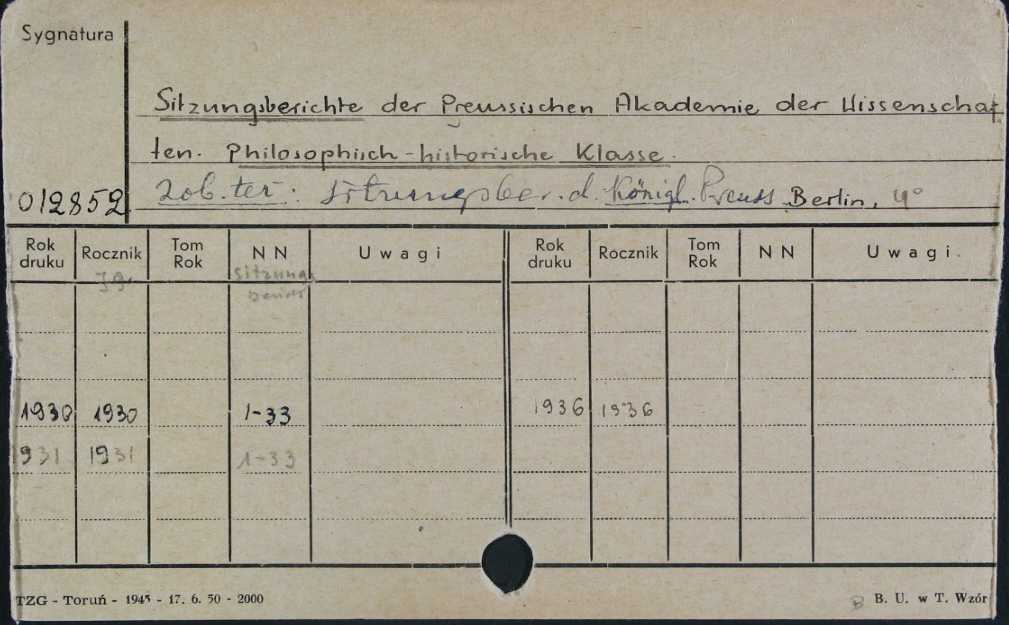 Sygnatura
Sitzungsberichte der Preussischen Akademie der Wissenschaf
ten. Philosophisch-historische Klasse.
012852 Zob. też: Sitzungsber. d. Königl. Preuss Berlin, 4°
Rok druku Rocznik Tom Rok NN Uwagi Rok druku Rocznik Tom Rok NN Uwagi.
Jg. Sitzungs
1930 1930 1-33 1936 1936
931 1931 1-33
TZG - Toruń - 1945 - 17. 6. 50 - 2000 B. U. w T. Wzór